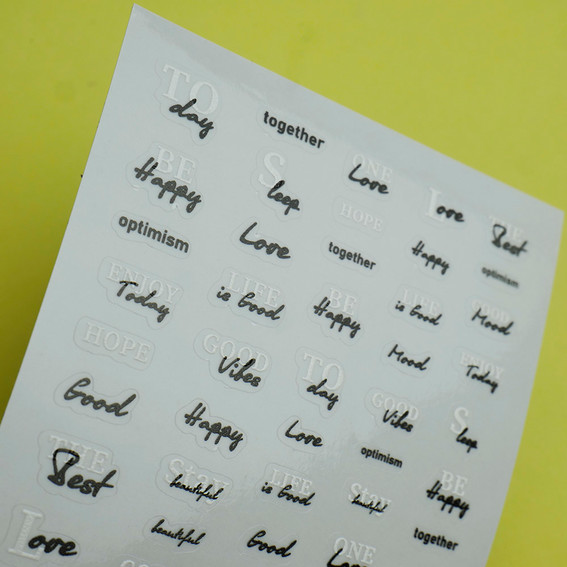 TO
day
together
ONE
Love
Love
THE
Best
BE
Happy
Sleep
HOPE
Happy
optimism
optimism
Love
together
LIFE
is Good
GOOD
Mood
ENJOY
Today
LIFE
is Good
BE
Happy
Mood
ENJOY
Today
HOPE
GOOD
Vibes
TO
day
GOOD
Vibes
Sleep
Good
Happy
Love
optimism
BE
Happy
THE
Best
Stay
beautiful
LIFE
is Good
Stay
beautiful
together
Love
beautiful
Good
ONE
Love